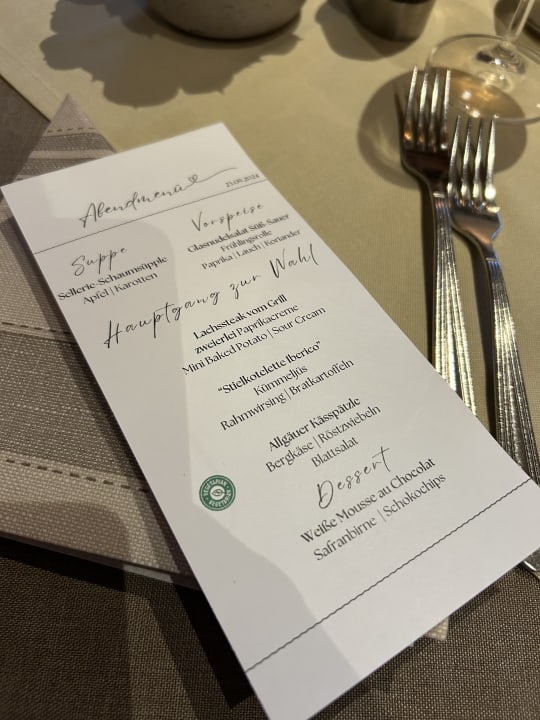 Abendmenü
Suppe
Sellerie-Schaumsüpple
Apfel | Karotten
Vorspeise
Glasnudelsalat Süß-Sauer
Frühlingsrolle
Paprika | Lauch | Koriander
Hauptgang zur Wahl
Lachssteak vom Grill
zweierlei Paprikacreme
Mini Baked Potato | Sour Cream
“Stielkotelette Iberico”
Kümmeljüs
Rahmwirsing | Bratkartoffeln
Allgäuer Kässpätzle
Bergkäse | Röstzwiebeln
Blattsalat
VEGETARIAN
VEGETARIAN
Dessert
Weiße Mousse au Chocolat
Safranbirne | Schokochips